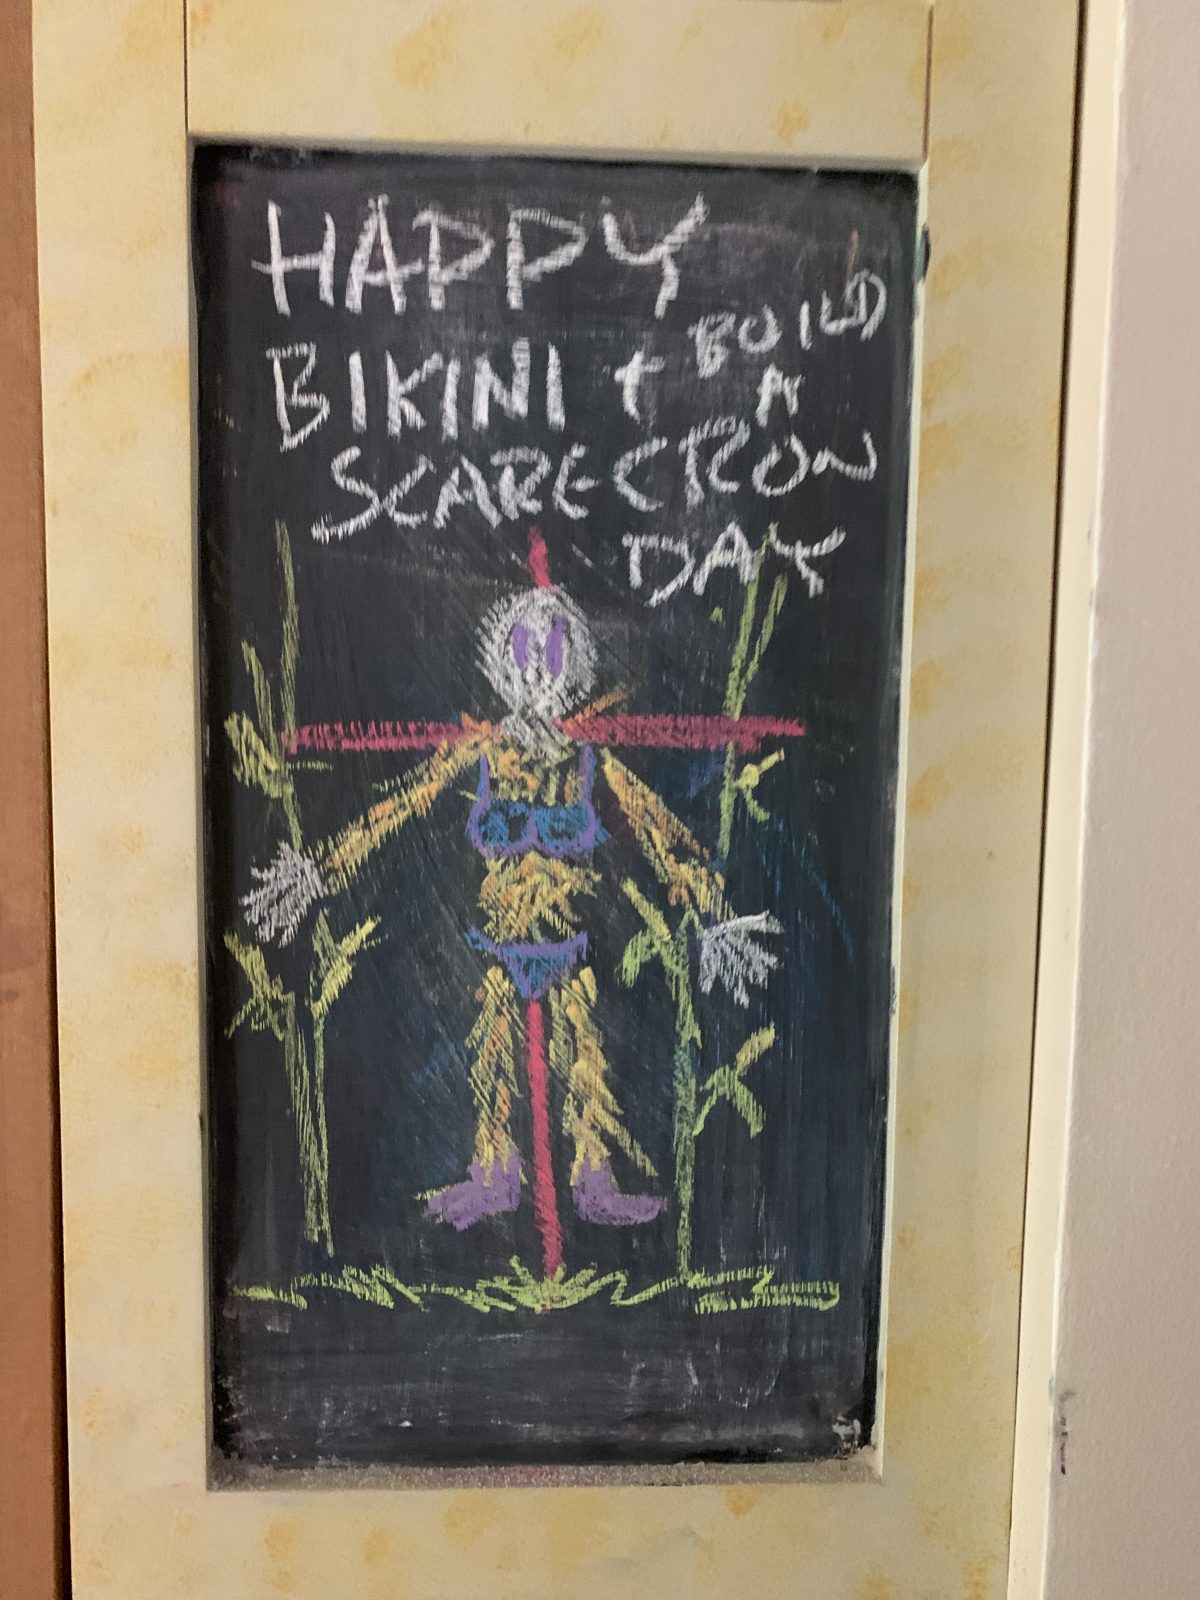 HAPPY
BIKINI + BUILD
A
SCARECROW
DAY